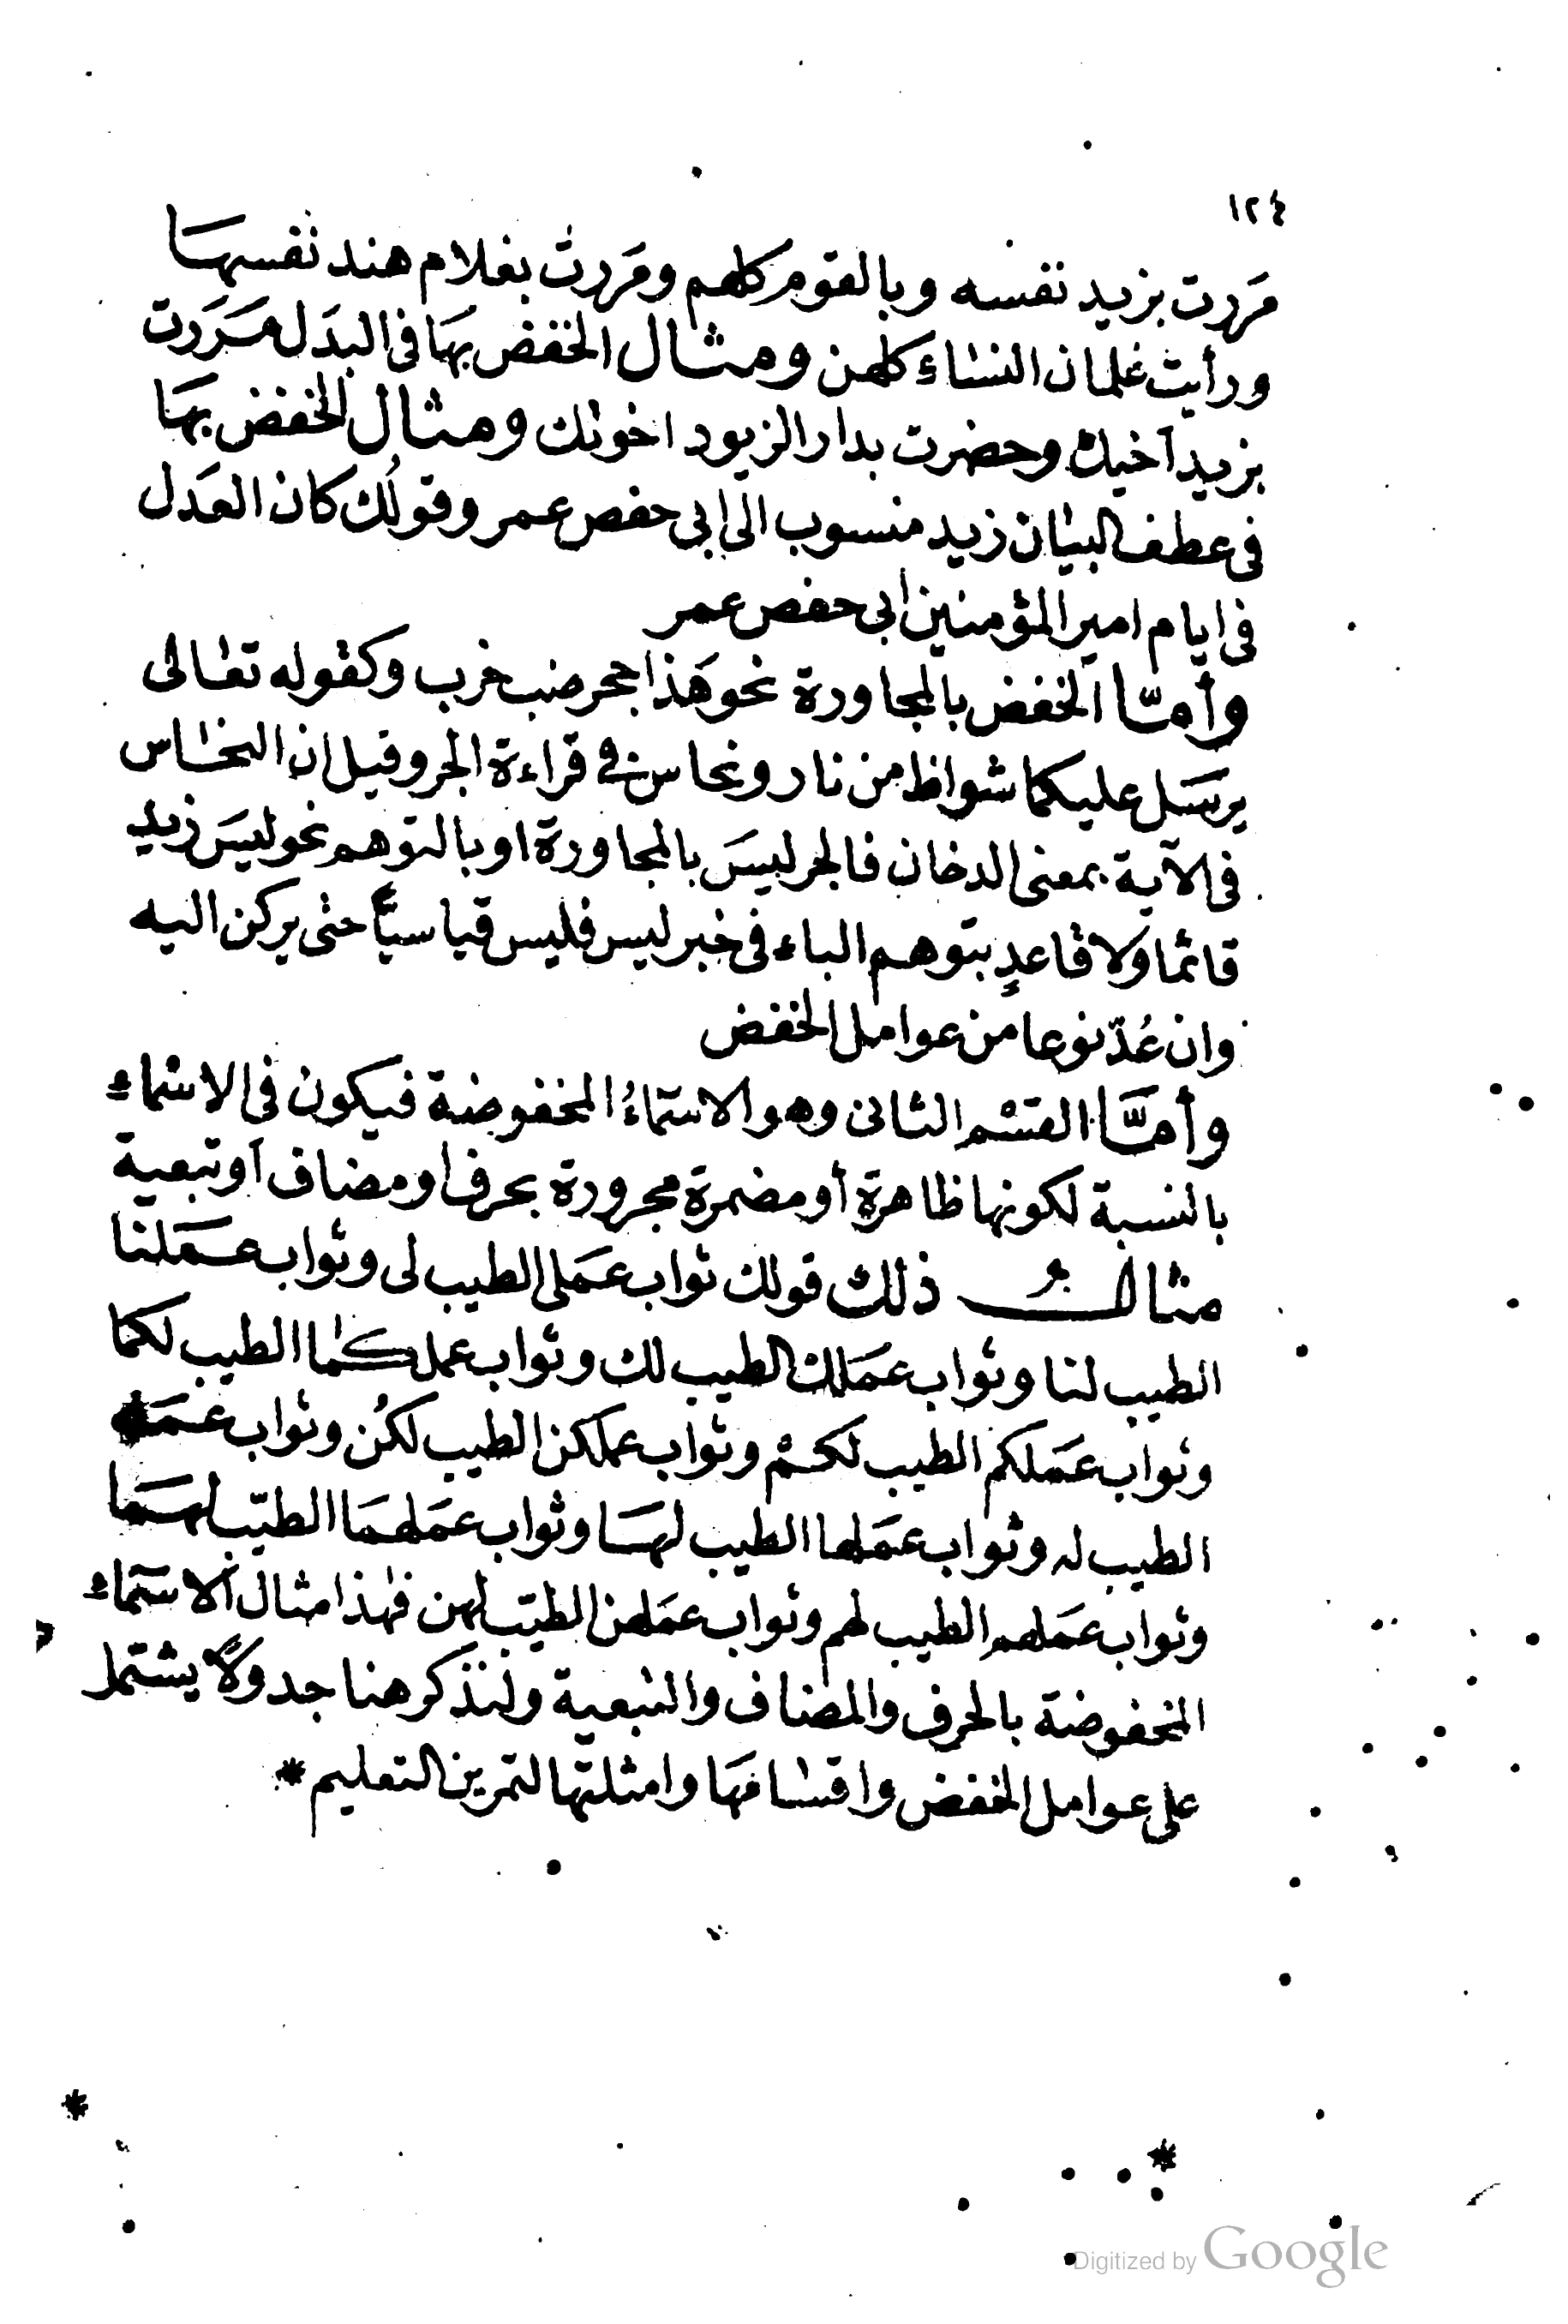 ١٢٤
مَررت بزيد نفسه وبالقوم كلهم ومَررت بغلام هند نفسهَا
ورأيت غلمان النساءَ كلهن ومثال الخفض بهَا فى البدَل مَرَرت
بزيد أخيك وحضرت بدار الزيود اخوتك ومثال الخفض بهَا
فى عطف البيان زيد منسوب الى ابى حفص عمر وقولُك كان العَدل
فى ايام امير المؤمنين ابى حفص عمر
وأمّا الخفض بالمجاورة نحو هَذا جحر ضب خرب وكقوله تعالى
يرسَل عليكما شواظ من نار ونحاس فى قراءة الجر وقيل ان النحاس
فى الآية بمعنى الدخان فالجر ليسَ بالمجاورة او بالتوهم نحو ليسَ زيد
قائما ولا قاعدٍ بتوهم الباء فى خبر ليس فليس قياسيًّا حتى يركن اليه
وان عُدّ نوعا من عوامل الخفض
وأمَّا القسْم الثانى وهو الاسمَاءُ المخفوضة فيكون فى الاسماءِ
بالنسبة لكونها ظاهرة أو مضمرة مجرورة بحرف او مضاف أو تبعية
مثال ذلك قولك ثواب عمَلى الطيب لى وثواب عمَلنا
الطيب لنا وثواب عمَلك الطيب لك وثواب عملكما الطيب لكما
وثواب عمَلكم الطيب لكمْ وثواب عملكن الطيب لكُن وثواب عمَله
الطيب له وثواب عمَلها الطيب لهَا وثواب عمَلهمَا الطيّب لهمَا
وثواب عمَلهم الطيب لهم وثواب عمَلهن الطيّب لهن فهذا مثال الاسمَاءِ
المخفوضة بالحرف والمضاف والتبعية ولنذكر هنا جدولًا يشتمل
على عوامل الخفض واقسامَها وامثلتها لتمرين التعليم *
Digitized by Google